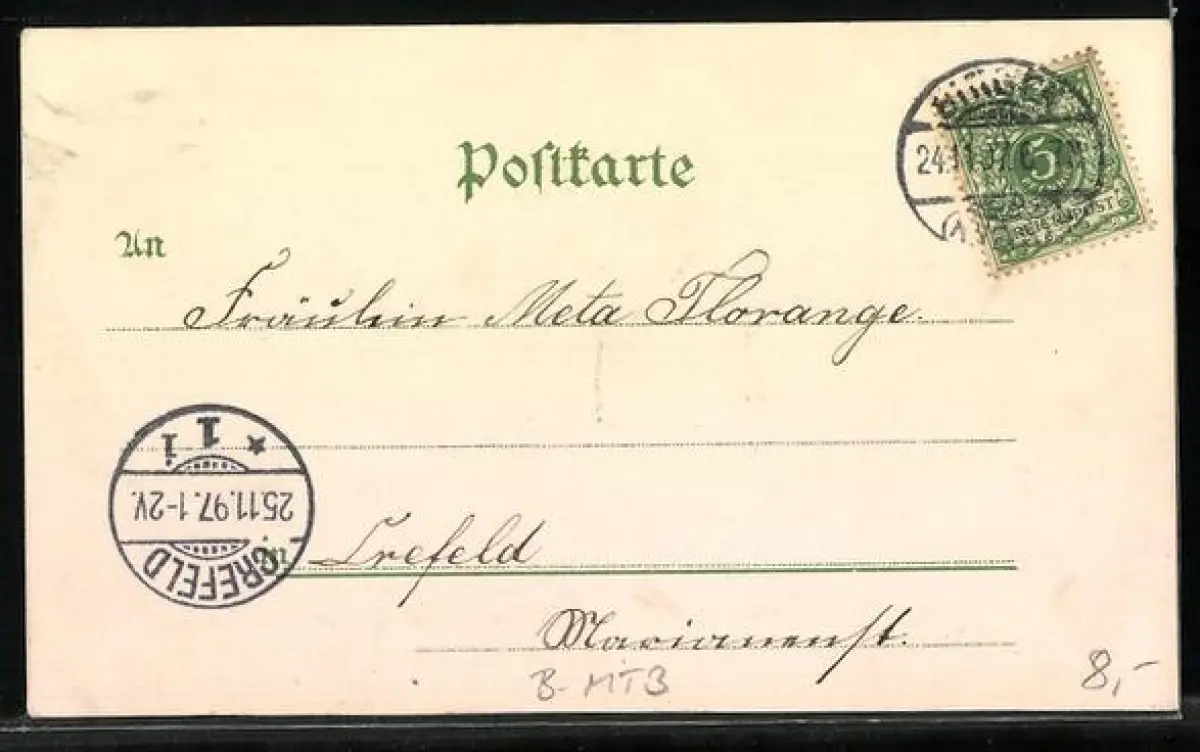 Postkarte
5
REICHSPOST
An
Fräulein Meta Florange.
1 i
25.11.97. 1-2V.
CREFELD
in Crefeld
Marianenst.
B-MTB
8,-